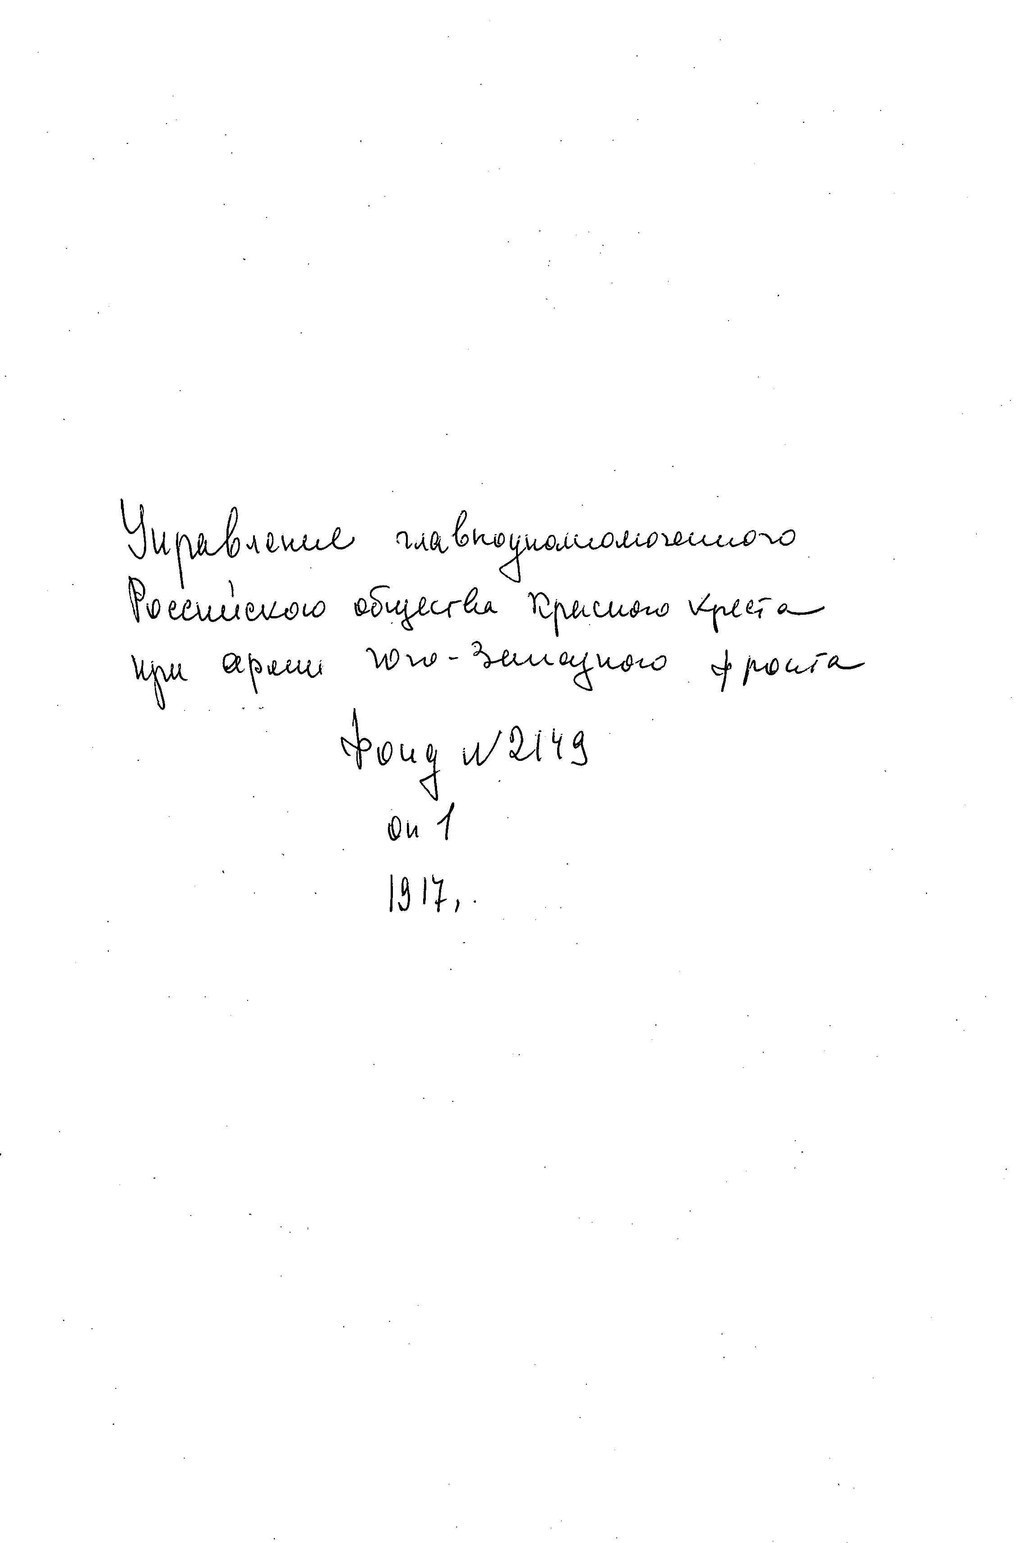 Управление главноуполномоченного
Российского общества Красного креста
при армии Юго-Западного фронта
Фонд №2149
оп 1
1917,.